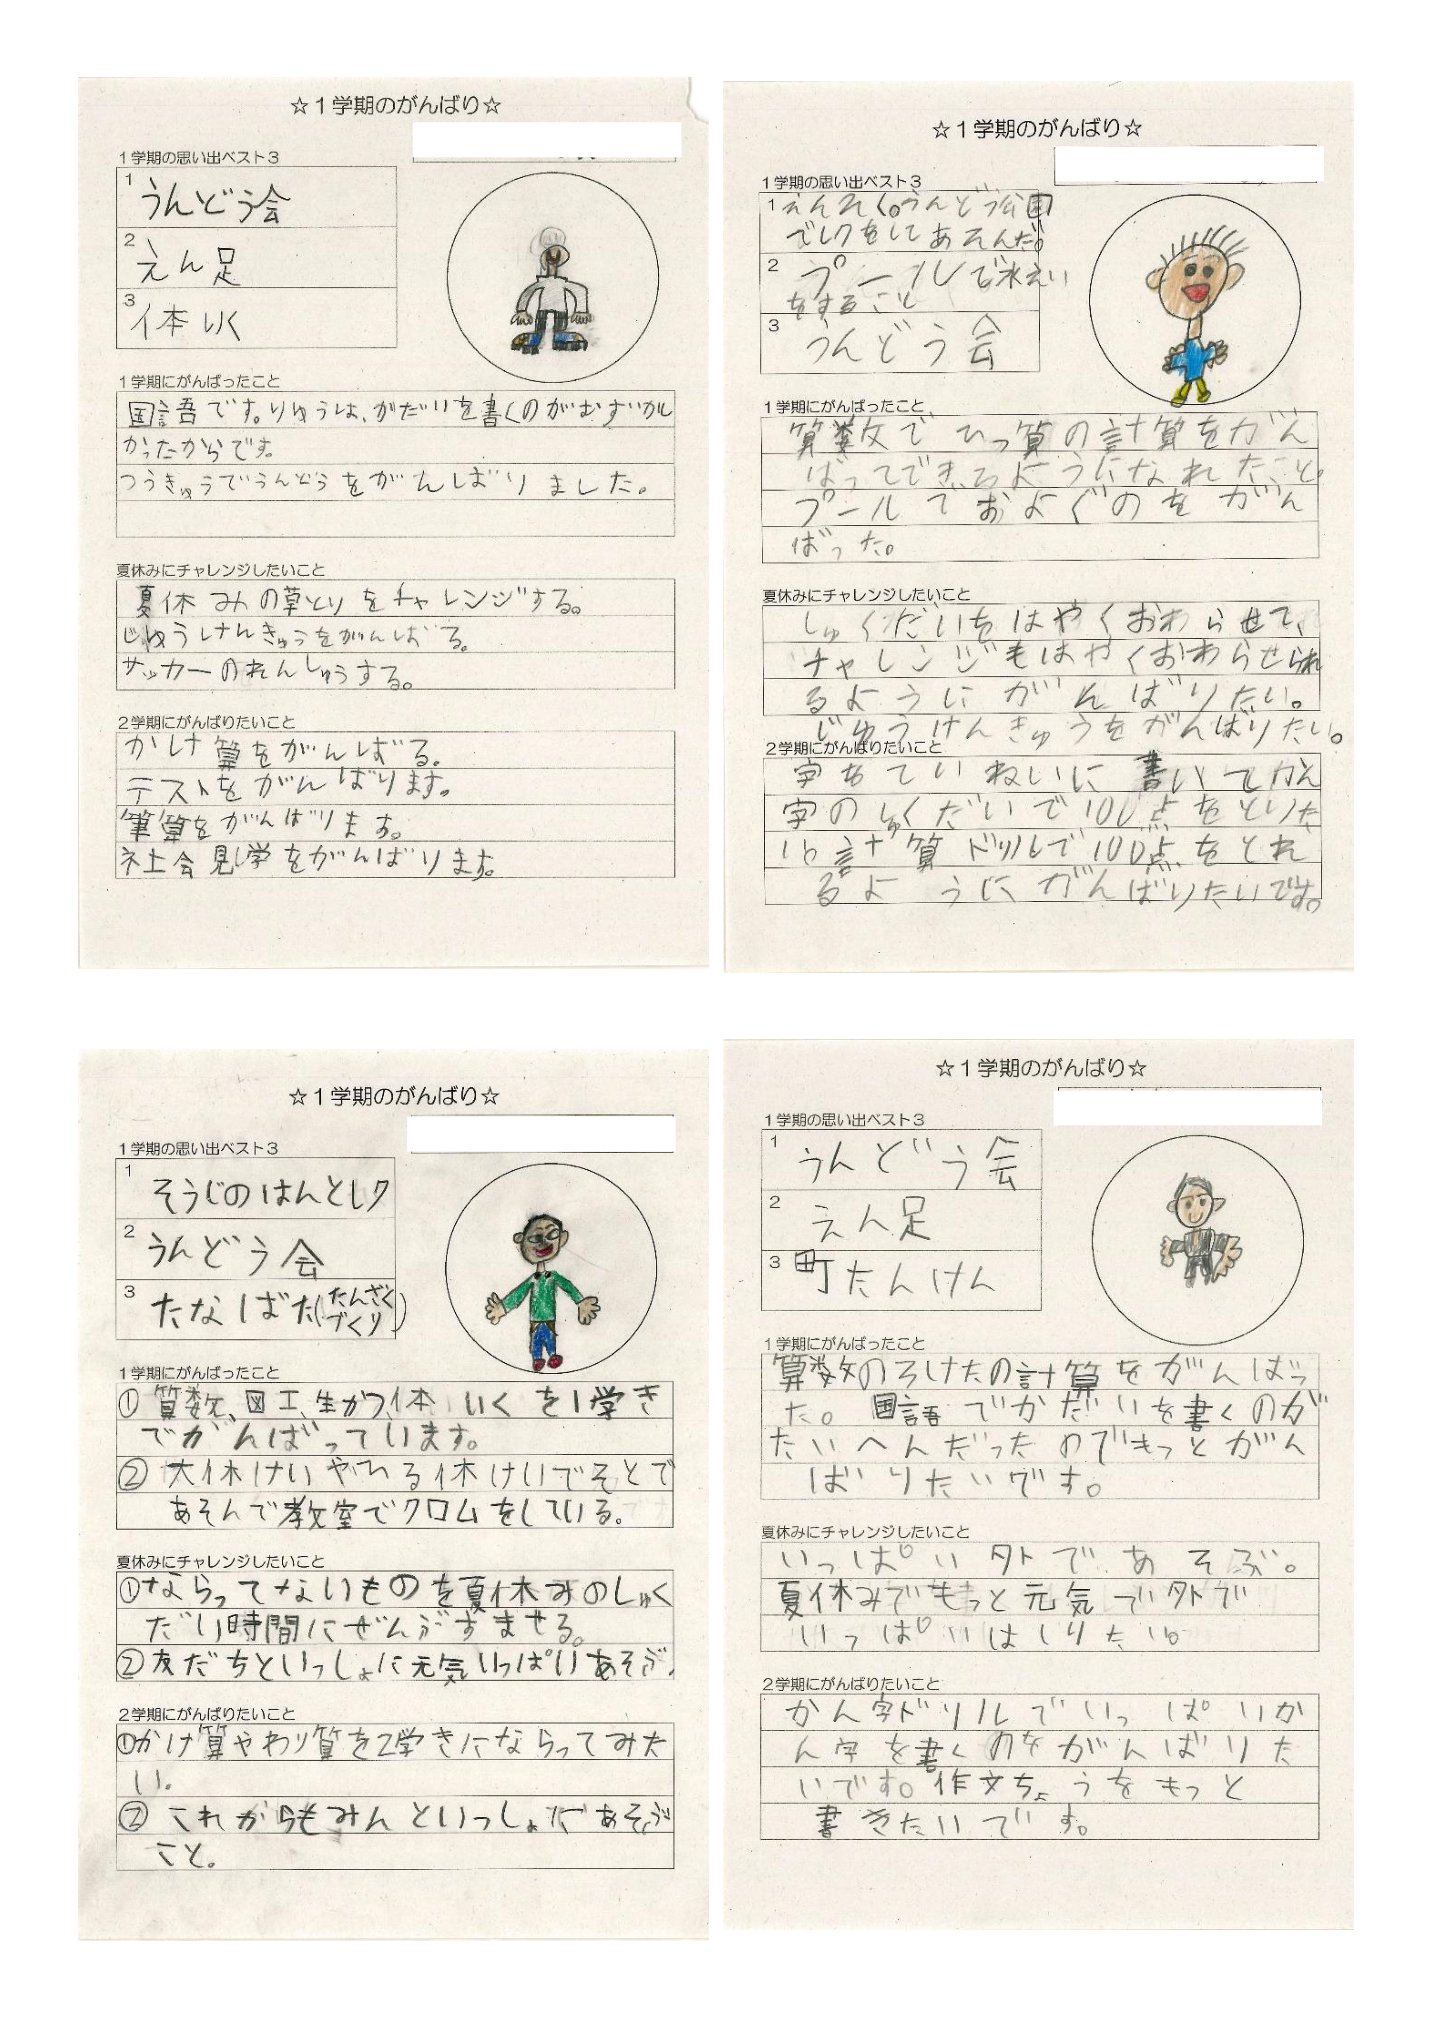 ☆１学期のがんばり☆
１学期の思い出ベスト３
1 うんどう会
2 えん足
3 体いく
１学期にがんばったこと
国語です。りゆうは、かだいを書くのがむずかし
かったからです。
つうきゅうでうんどうをがんばりました。
夏休みにチャレンジしたいこと
夏休みの草とりをチャレンジする。
じゆうけんきゅうをがんばる。
サッカーのれんしゅうする。
２学期にがんばりたいこと
かけ算をがんばる。
テストをがんばります。
筆算をがんばります。
社会見学をがんばります。
☆１学期のがんばり☆
１学期の思い出ベスト３
1 えんそく。うんどう公園
でレクをしてあそんだ。
2 プールで水えい
をすること
3 うんどう会
１学期にがんばったこと
算数でひっ算の計算をがん
ばってできるようになれたこと。
プールでおよぐのをがん
ばった。
夏休みにチャレンジしたいこと
しゅくだいをはやくおわらせて、
チャレンジもはやくおわらせられ
るようにがんばりたい。
じゆうけんきゅうをがんばりたい。
２学期にがんばりたいこと
字をていねいに書いてかん
字のしゅくだいで100点をとりた
い。計算ドリルで100点をとれ
るようにがんばりたいです。
☆１学期のがんばり☆
１学期の思い出ベスト３
1 そうじのはんとレク
2 うんどう会
3 たなばた(たんざく
づくり)
１学期にがんばったこと
① 算数、図工、生かつ、体いくを1学き
でがんばっています。
② 大休けいやひる休けいでそとで
あそんで教室でクロムをしている。
夏休みにチャレンジしたいこと
①ならってないものを夏休みのしゅく
だい時間にぜんぶすませる。
②友だちといっしょに元気いっぱいあそぶ。
２学期にがんばりたいこと
①かけ算やわり算を2学きにならってみた
い。
② これからもみんといっしょにあそぶ
こと。
☆１学期のがんばり☆
１学期の思い出ベスト３
1 うんどう会
2 えん足
3 町たんけん
１学期にがんばったこと
算数のろけたの計算をがんばっ
た。国語でかだいを書くのが
たいへんだったのでもっとがん
ばりたいです。
夏休みにチャレンジしたいこと
いっぱい外であそぶ。
夏休みでもっと元気で外で
いっぱいはしりたい。
２学期にがんばりたいこと
かん字ドリルでいっぱいか
ん字を書くのをがんばりた
いです。作文ちょうをもっと
書きたいです。